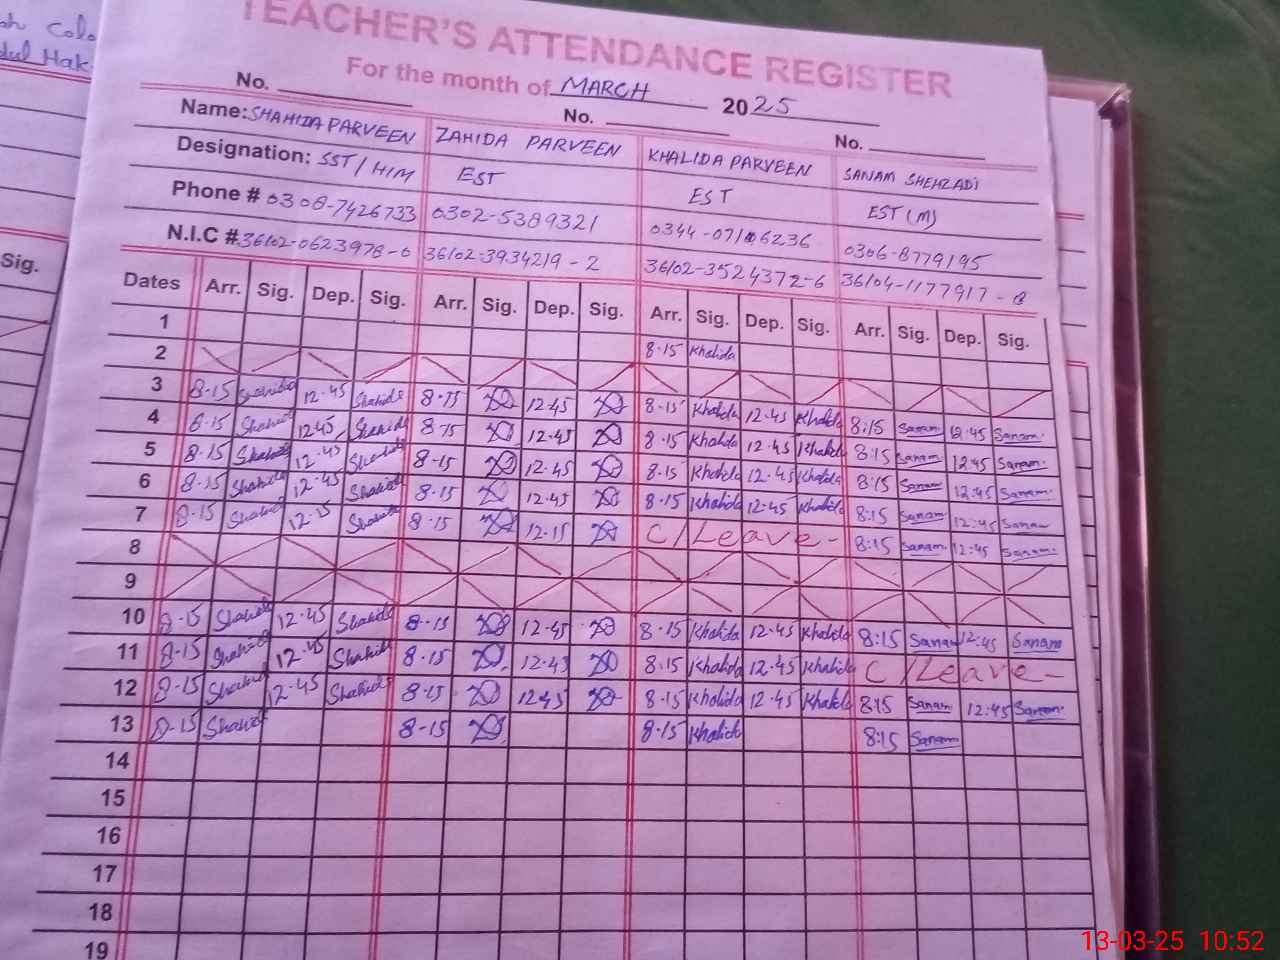 Colo
Hak
Sig.
TEACHER'S ATTENDANCE REGISTER
For the month of MARCH 2025
No. No. No.
Name: SHAHIDA PARVEEN ZAHIDA PARVEEN KHALIDA PARVEEN SANAM SHEHZADI
Designation: SST / HIM EST EST EST (M)
Phone # 0308-7426733 0302-5389321 0344-0716236 0306-8779195
N.I.C # 36102-0623978-0 36102-3934219-2 36102-3524372-6 36104-1177917-8
Dates Arr. Sig. Dep. Sig. Arr. Sig. Dep. Sig. Arr. Sig. Dep. Sig. Arr. Sig. Dep. Sig.
1 8.15 Khalida
2
3 8.15 Shahida 12.45 Shahida 8.15 12.45 8.15 Khalida 12.45 Khalida 8:15 Sanam 12:45 Sanam
4 8.15 Shahida 12.45 Shahida 8.15 12.45 8.15 Khalida 12.45 Khalida 8:15 Sanam 12:45 Sanam
5 8.15 Shahida 12.45 Shahida 8.15 12.45 8.15 Khalida 12.45 Khalida 8:15 Sanam 12:45 Sanam
6 8.15 Shahida 12.45 Shahida 8.15 12.45 8.15 Khalida 12.45 Khalida 8:15 Sanam 12:45 Sanam
7 8.15 Shahida 12.15 Shahida 8.15 12.15 C/Leave - 8:15 Sanam 12:45 Sanam
8
9
10 8.15 Shahida 12.45 Shahida 8.15 12.45 8.15 Khalida 12.45 Khalida 8:15 Sanam 12:45 Sanam
11 8.15 Shahida 12.45 Shahida 8.15 12.45 8.15 Khalida 12.45 Khalida C/Leave -
12 8.15 Shahida 12.45 Shahida 8.15 12.45 8.15 Khalida 12.45 Khalida 8:15 Sanam 12:45 Sanam
13 8.15 Shahida 8.15 8.15 Khalida 8:15 Sanam
14
15
16
17
18
19
13-03-25 10:52